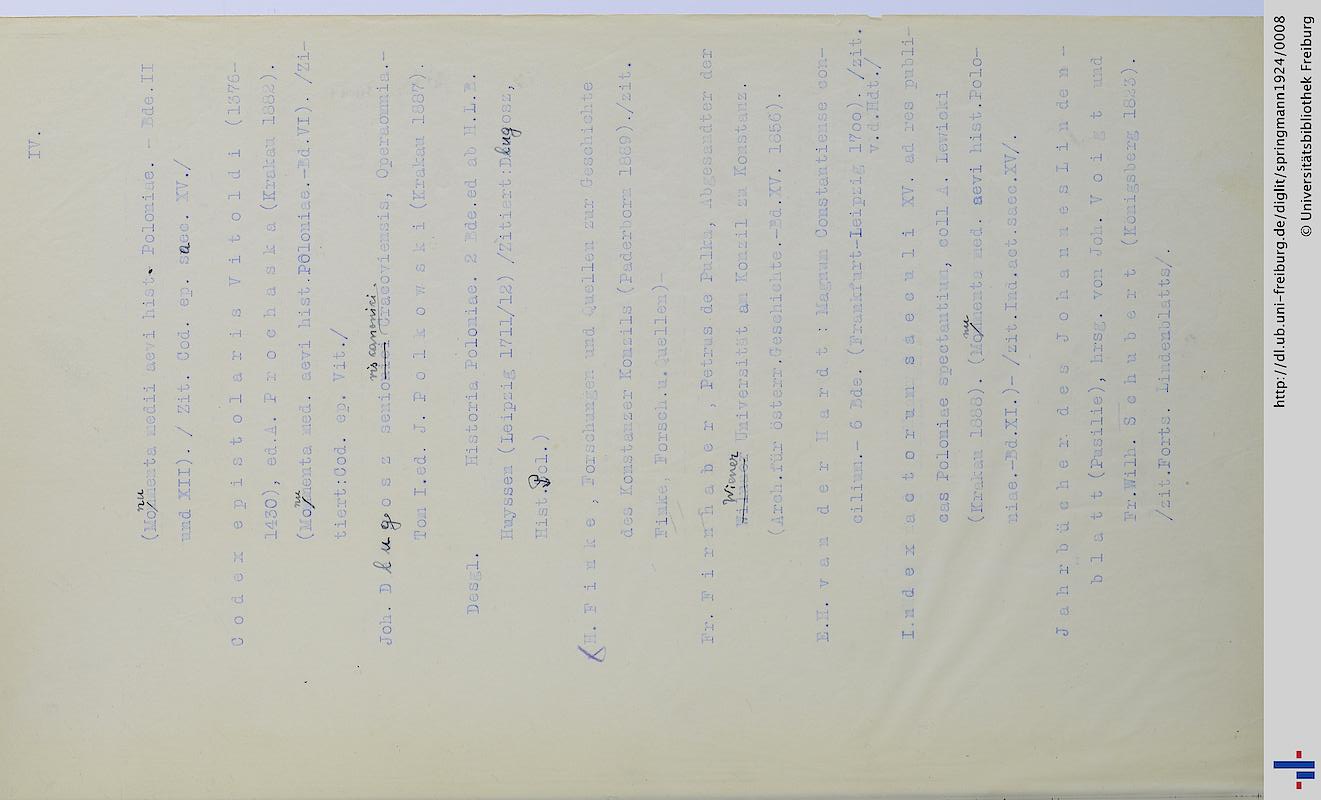 IV.
(Monumenta medii aevi hist. Poloniae. - Bde.II
und XII). / Zit. Cod. ep. saec. XV./
C o d e x  e p i s t o l a r i s  V i t o l d i  (1376-
1430), ed.A. P r o c h a s k a (Krakau 1882).
(Monumenta med. aevi hist.Poloniae.-Bd.VI). /Zi-
tiert:Cod. ep. Vit./
Joh. D ł u g o s z senioris canonici Cracoviensis, Operaomnia.-
Tom I.ed. J. P o l k o w s k i (Krakau 1887).
Desgl. Historia Poloniae. 2 Bde.ed ab H.L.B.
Huyssen (Leipzig 1711/12) /Zitiert:Długosz,
Hist.Pol.)
H. F i n k e , Forschungen und Quellen zur Geschichte
des Konstanzer Konzils (Paderborn 1889)./zit.
Finke, Forsch.u.Quellen)-
Fr. F i r n h a b e r , Petrus de Pulka, Abgesandter der
Wiener Universität am Konzil zu Konstanz.
(Arch.für österr.Geschichte.-Bd.XV. 1856).
E.H. v a n  d e r  H a r d t : Magnum Constantiense con-
cilium.- 6 Bde. (Frankfurt-Leipzig 1700). /zit.
v.d.Hdt./
I n d e x  a c t o r u m  s a e c u l i  XV. ad res publi-
cas Poloniae spectantium, coll A. Lewicki
(Krakau 1888). (Monumenta med. aevi hist.Polo-
niae.-Bd.XI.)- /zit.Ind.act.saec.XV/.
J a h r b ü c h e r  d e s  J o h a n n e s L i n d e n -
b l a t t (Pusilie), hrsg. von Joh. V o i g t und
Fr.Wilh. S c h u b e r t (Königsberg 1823).
/zit.Forts. Lindenblatts/.
http://dl.ub.uni-freiburg.de/diglit/springmann1924/0008
© Universitätsbibliothek Freiburg